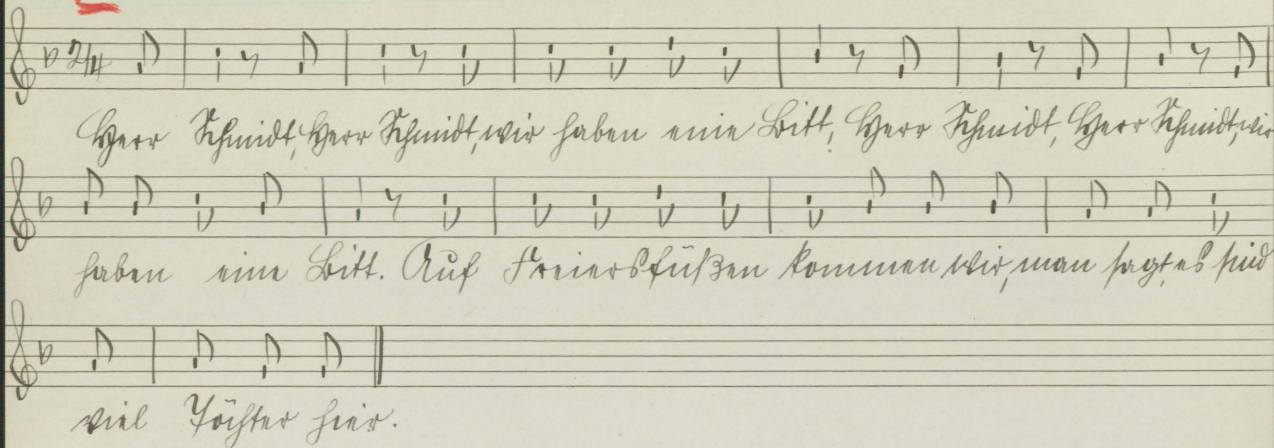 2/4
Herr Schmidt, Herr Schmidt, wir haben eine Bitt, Herr Schmidt, Herr Schmidt, wir
haben eine Bitt. Auf Freiersfüßen kommen wir, man sagt, es sind
viel Töchter hier.